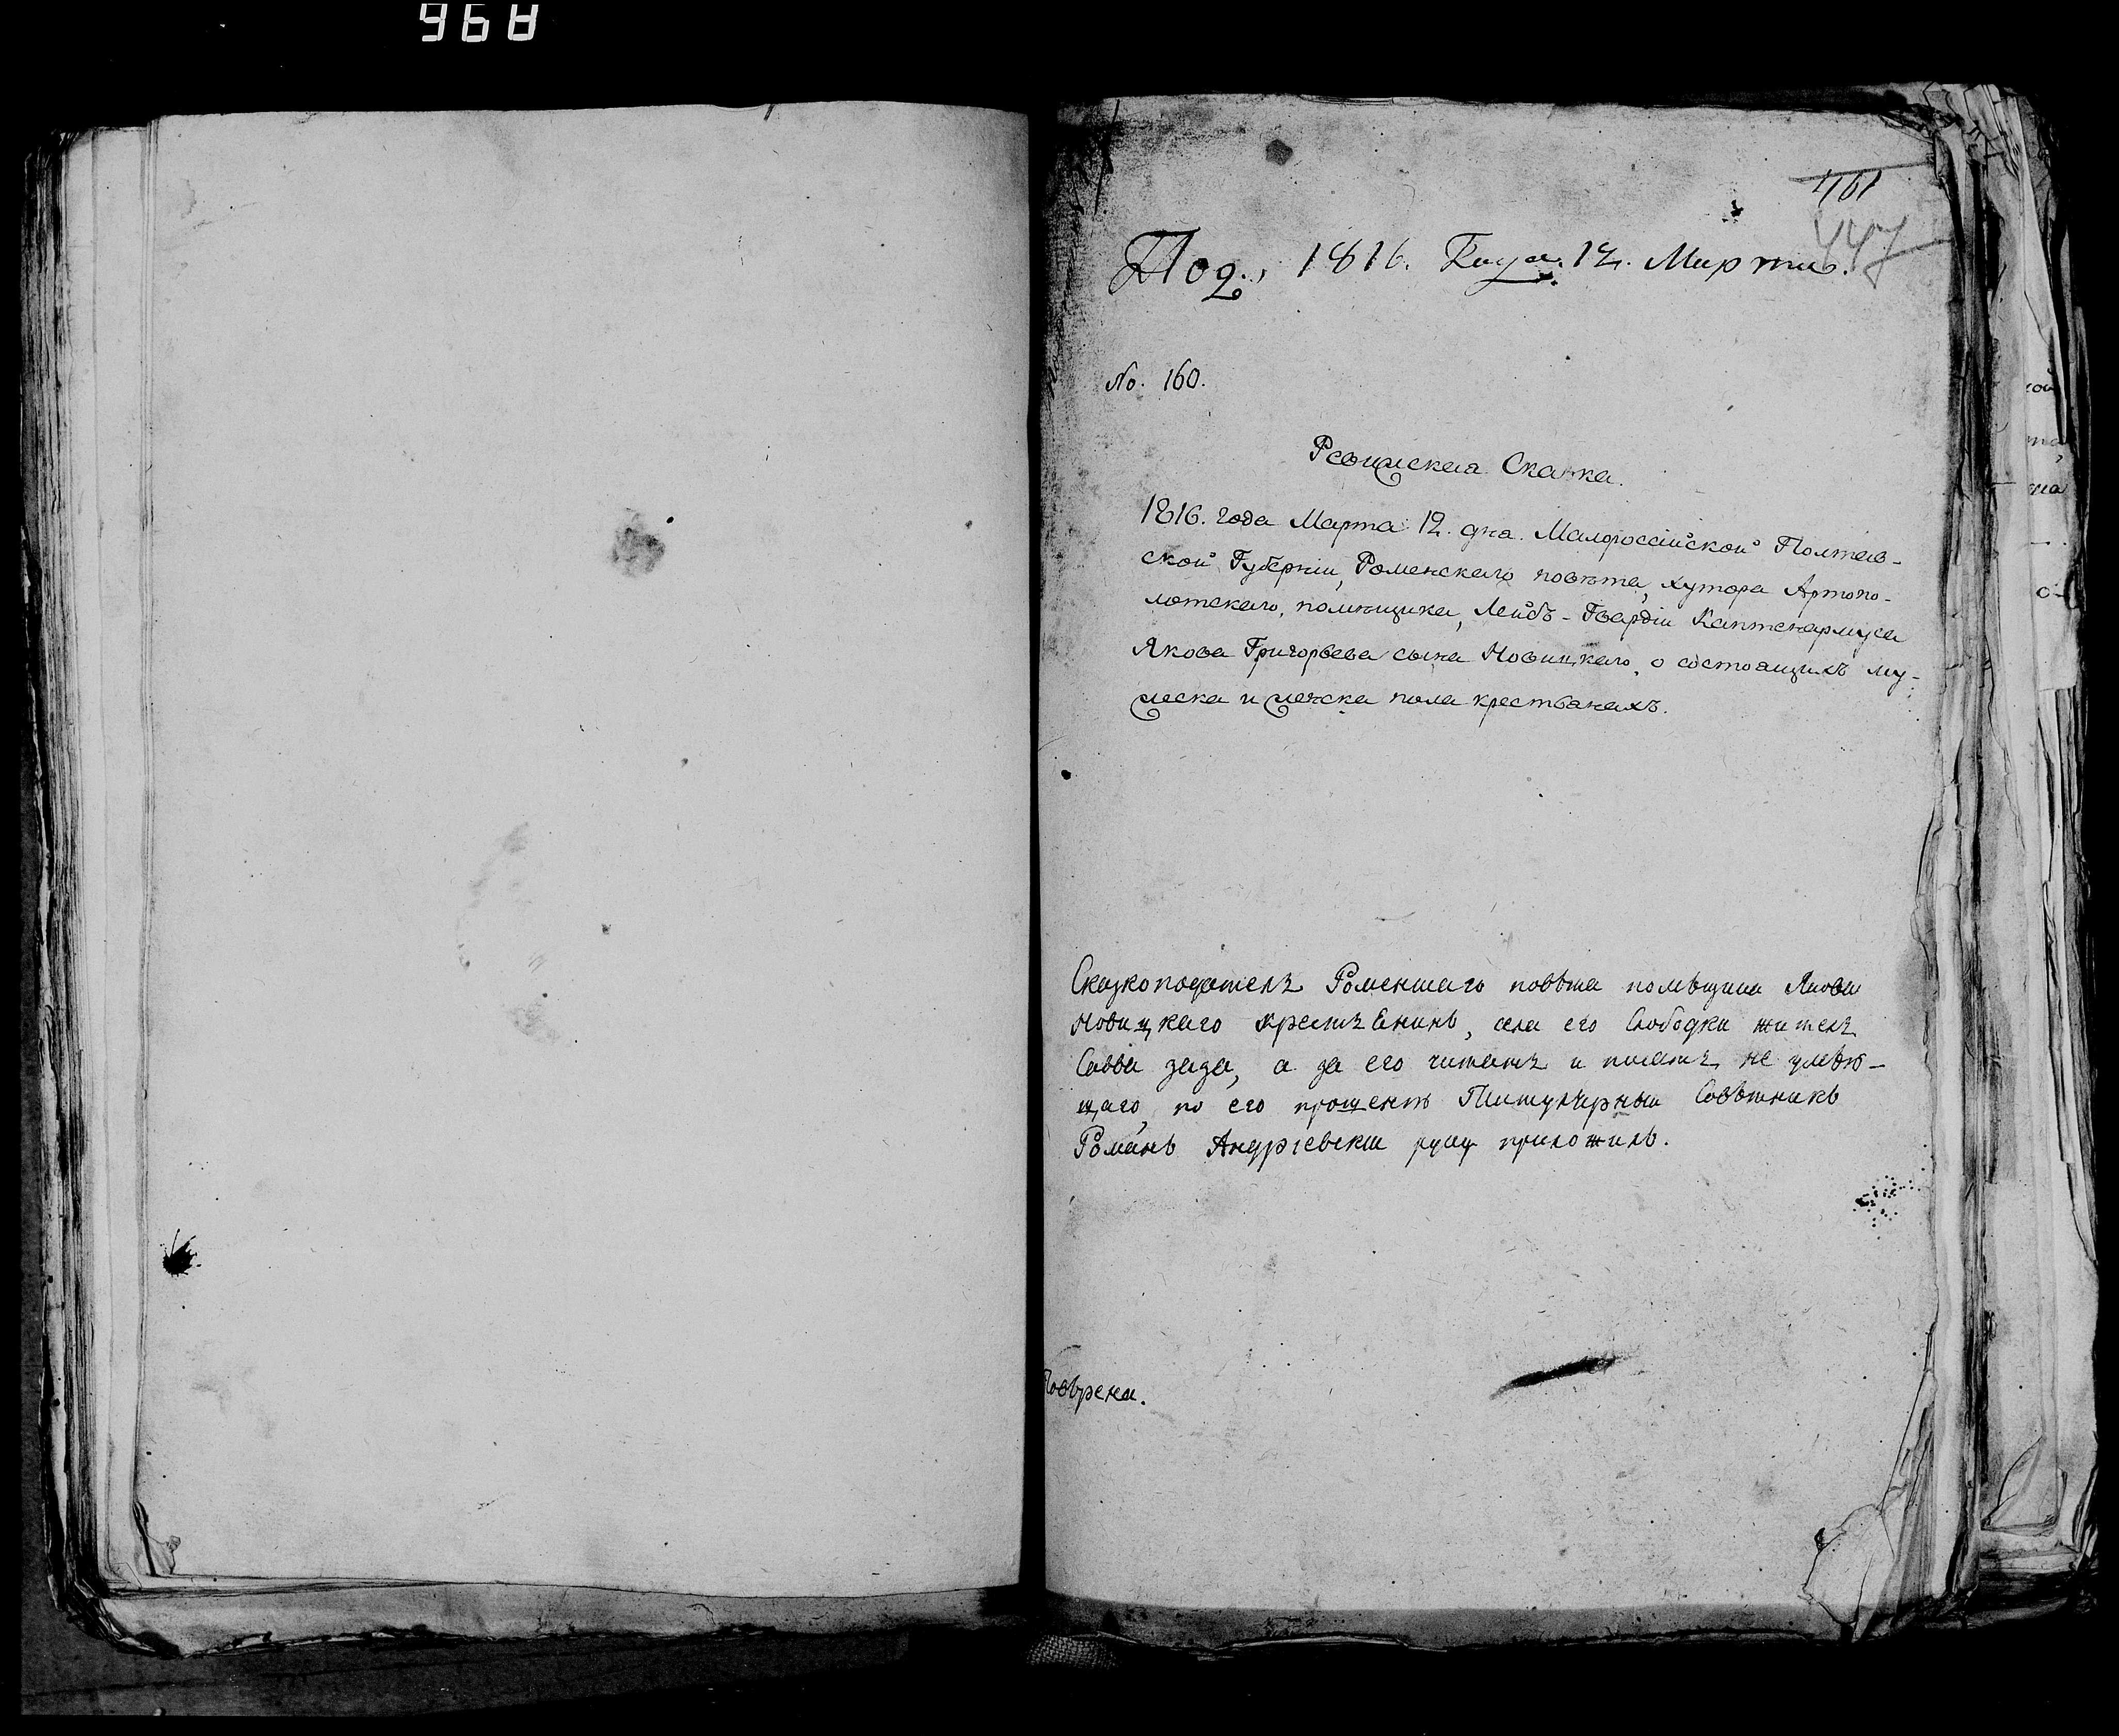 968
461
447
Под., 1816. Года. 12. Марта.
No. 160.
Ревижская Сказка.
1816. года Марта 12. дня. Малороссійской Полтав-
ской Губерніи, Роменскаго повѣта, хутора Артопо-
лотскаго, помѣщика, Лейбъ-Гвардіи Каптенармуса
Якова Григорьева сына Новицкаго, о состоящихъ му-
жеска и женска пола крестьянахъ.
Сказкоподатель Роменскаго повѣта помѣщика Якова
Новицкаго крестьянинъ, села его Слободки житель
Савва заза, а за его читать и писать не умѣю-
щаго, по его прошенію Титулярный Совѣтникъ
Романъ Андріевскій руку приложилъ.
Повѣрена.